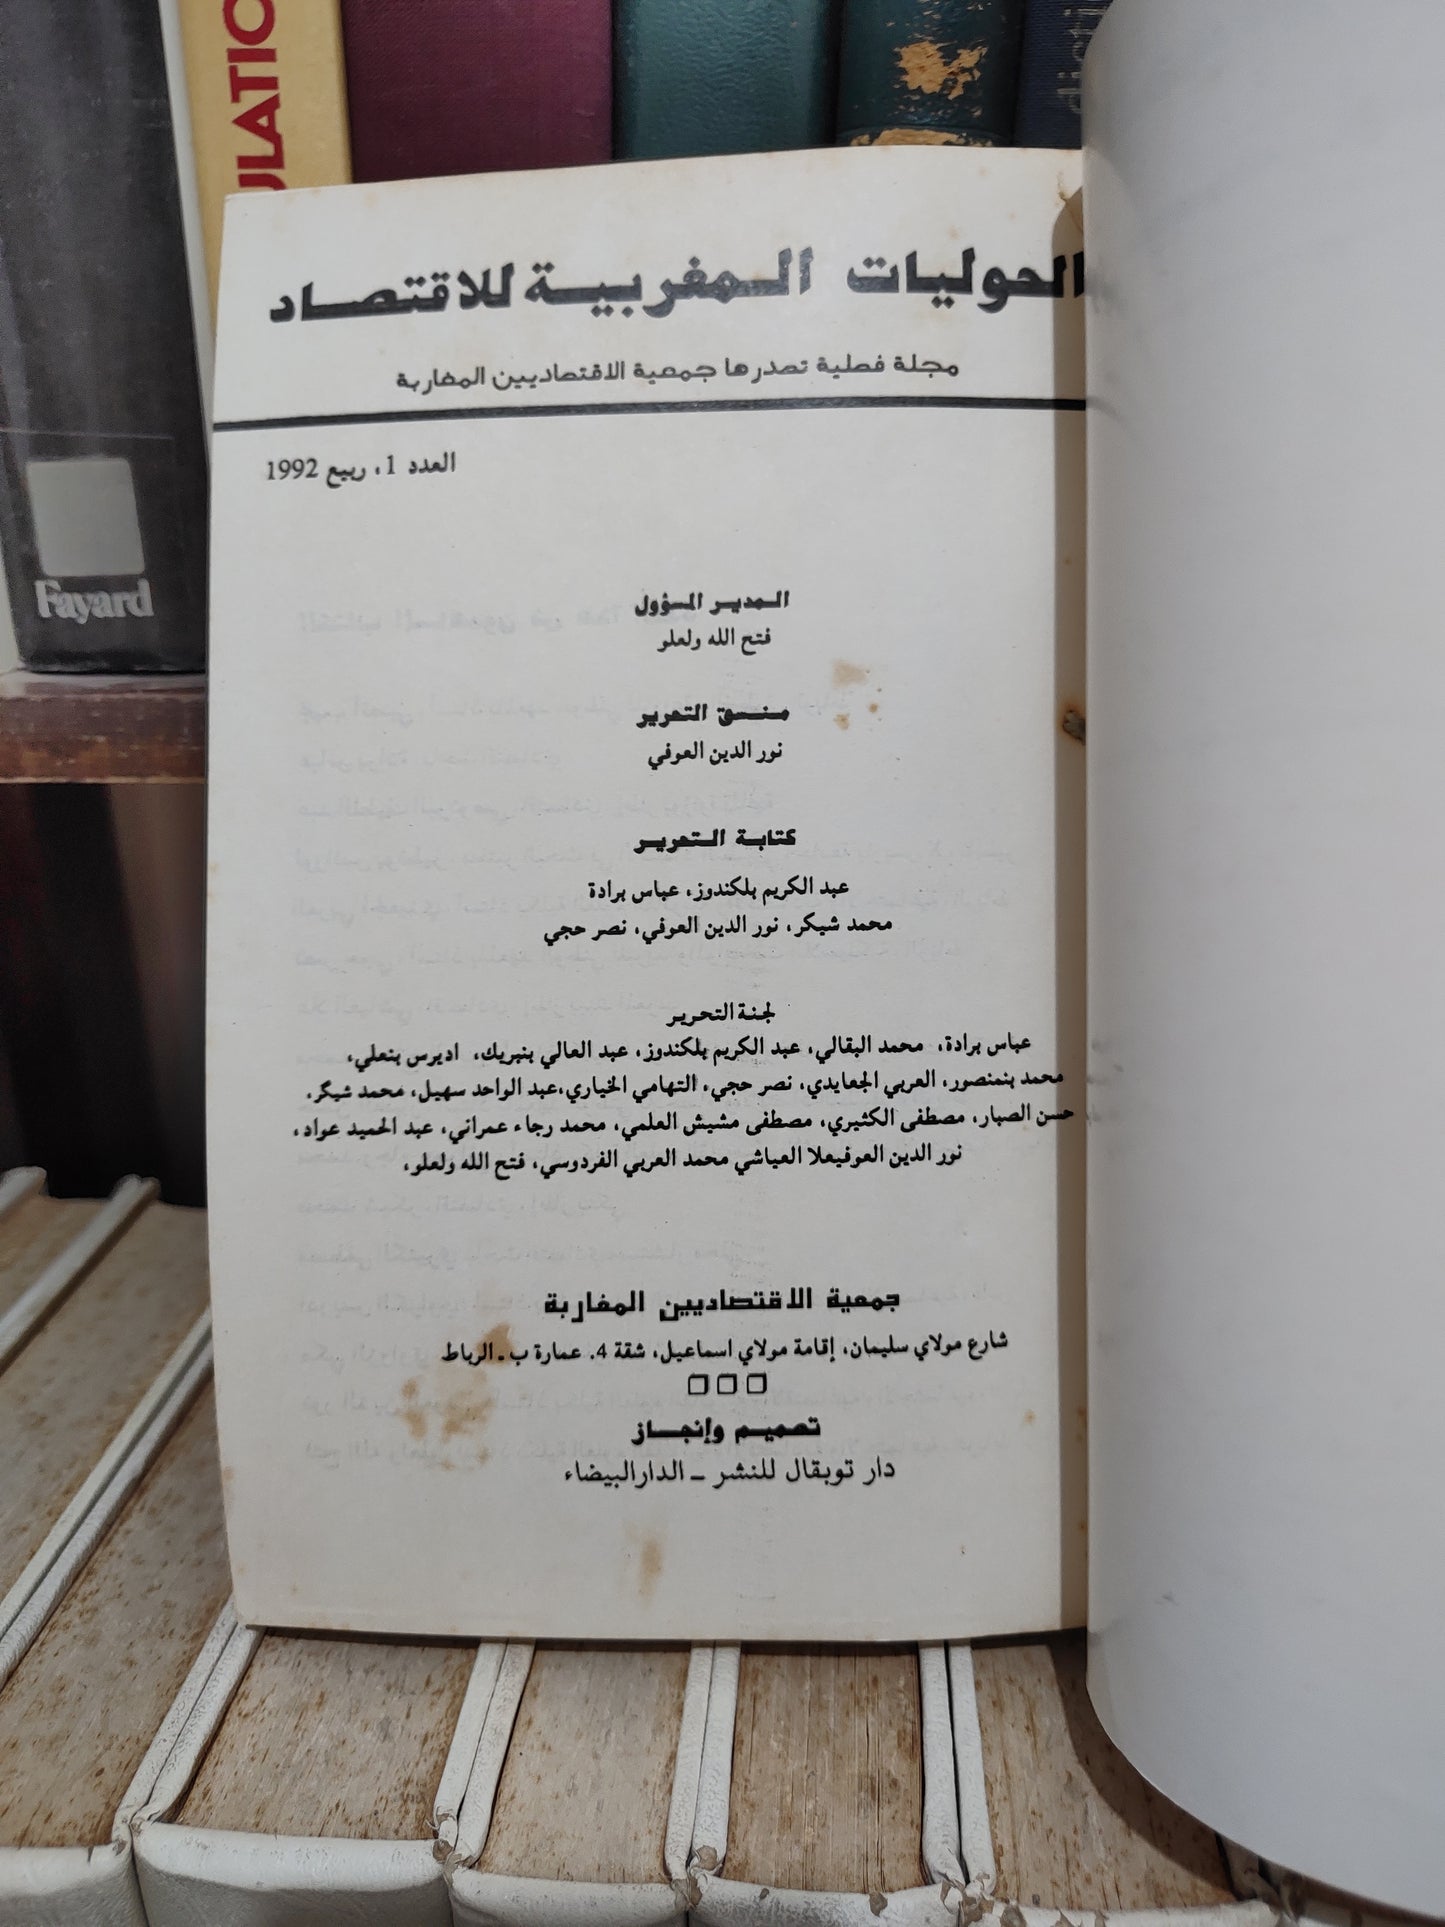 ULATIO
Fayard
الحوليات المغربية للاقتصاد
مجلة فصلية تصدرها جمعية الاقتصاديين المغاربة
العدد 1، ربيع 1992
المدير المسؤول
فتح الله ولعلو
منسق التحرير
نور الدين العوفي
كتابة التحرير
عبد الكريم بلكندوز، عباس برادة
محمد شيكر، نور الدين العوفي، نصر حجي
لجنة التحرير
عباس برادة، محمد البقالي، عبد الكريم بلكندوز، عبد العالي بنبريك، اديرس بنعلي،
محمد بنمنصور، العربي الجعايدي، نصر حجي، التهامي الخياري،عبد الواحد سهيل، محمد شيكر،
حسن الصبار، مصطفى الكثيري، مصطفى مشيش العلمي، محمد رجاء عمراني، عبد الحميد عواد،
نور الدين العوفيعلا العياشي محمد العربي الفردوسي، فتح الله ولعلو،
جمعية الاقتصاديين المغاربة
شارع مولاي سليمان، إقامة مولاي اسماعيل، شقة 4. عمارة ب ـ الرباط
تصميم وإنجاز
دار توبقال للنشر ـ الدارالبيضاء